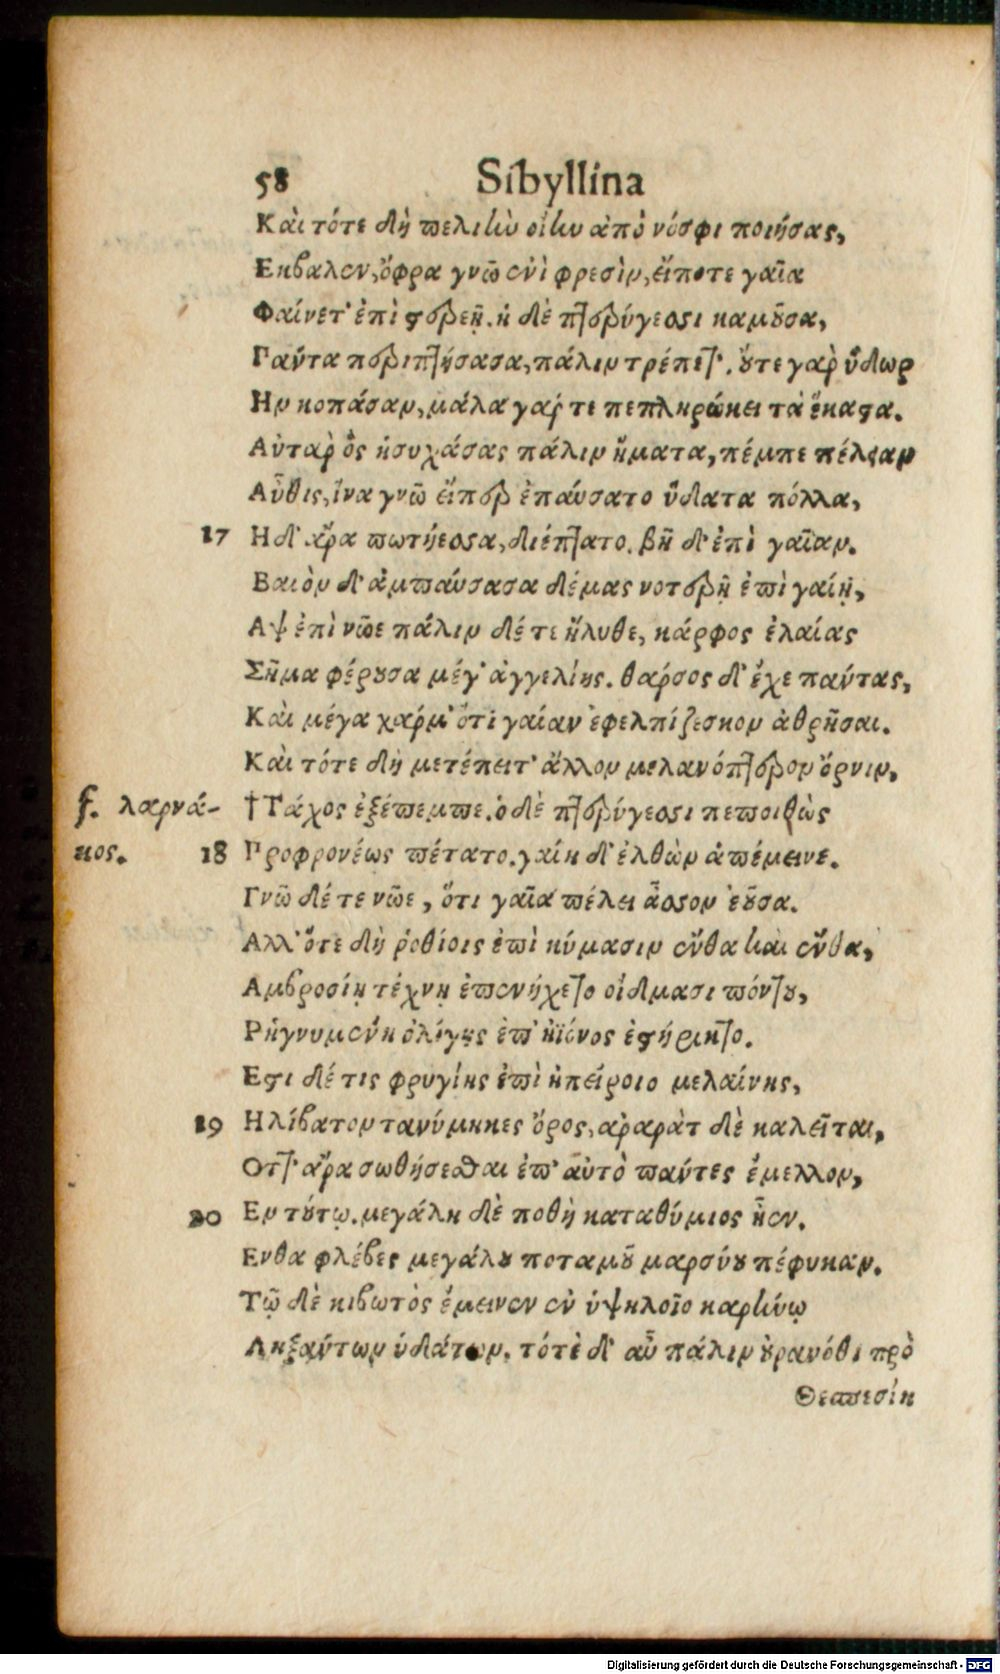 58 Sibyllina
Καὶ τότε δὴ πελιὴν οἰὴν ἀπὸ νόσφι ποιήσας,
Εκβαλεν, ὄφρα γνῶ ἐνὶ φρεσὶν, εἴποτε γαῖα
Φαίνετ' ἐπὶ στερεῇ. ἡ δὲ πτερύγεσσι καμοῦσα,
Παύτα περιπτήσασα, πάλιν τρέπετ'. οὔτε γαρ ὕδωρ
Ην κοπάσαν, μάλα γαρ τε πεπληρώκει τὰ ἕκαστα.
Αὐταρ ὃς ἡσυχάσας πάλιν ἤματα, πέμπε πέλειαν
Αὖθις, ἵνα γνῶ εἴπερ ἐπαύσατο ὕδατα πόλλα,
17 Η δ' ἄρα πωτήεσσα, διέπτατο. βῆ δ' ἐπὶ γαῖαν.
Βαιὸν δ' ἀμπαύσασα δέμας νοτερῇ ἐπὶ γαίῃ,
Αψ ἐπὶ νῶε πάλιν δέ τε ἤλυθε, κάρφος ἐλαίας
Σῆμα φέρουσα μέγ' ἀγγελίης. θαρσος δ' ἔχε παύτας,
Καὶ μέγα χαρμ' ὅτι γαίαν ἐφελπίζεσκον ἀθρῆσαι.
Καὶ τότε δὴ μετέπειτ' ἄλλον μελανόπτερον ὄρνιν,
f. λαρνά- †Τάχος ἐξέπεμπε. ὁ δὲ πτερύγεσσι πεποιθὼς
κος. 18 Προφρονέως πέτατο. γαίη δ' ἐλθὼν ἀπέμεινε.
Γνῶ δέ τε νῶε, ὅτι γαῖα πέλει ἆσσον ἐοῦσα.
Αλλ' ὅτε δὴ ῥοθίοις ἐπὶ κύμασιν ἔνθα καὶ ἔνθα,
Αμβροσίῃ τέχνῃ ἐπενήχετο οἴδμασι πόντου,
Ρήγνυμένη ὀλίγης ἐπ' ἠϊόνος ἐστήρικτο.
Εστι δέ τις φρυγίης ἐπὶ ἠπείροιο μελαίνης,
19 Ηλίβατον τανύμηκες ὄρος, ἀραρὰτ δὲ καλεῖται,
Οττ' ἄρα σωθήσεσθαι ἐπ' αὐτὸ παύτες ἔμελλον,
20 Εν τούτῳ. μεγάλη δὲ ποθὴ καταθύμιος ἦεν.
Ενθα φλέβες μεγάλου ποταμοῦ μαρσύου πέφυκαν.
Τῷ δὲ κιβωτὸς ἔμεινεν ἐν ὑψηλοῖο καρήνῳ
Ληξαύτων ὑδάτων, τότὲ δ' αὖ πάλιν οὐρανόθι πρὸ
Θεσπεσίη
Digitalisierung gefördert durch die Deutsche Forschungsgemeinschaft - DFG